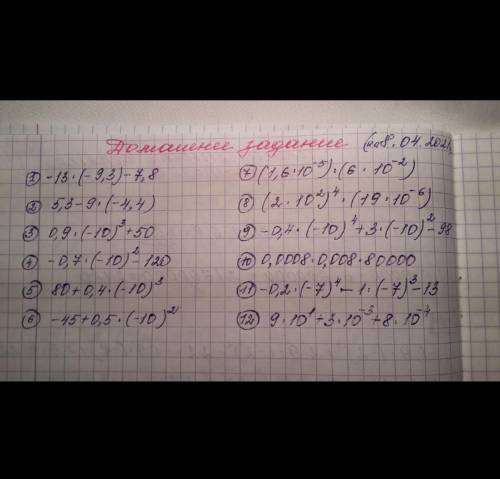 Домашнее задание (на 8.04.2021
① -13·(-9,3)-7,8
② 5,3-9·(-4,4)
③ 0,9·(-10)³+50
④ -0,7·(-10)²-120
⑤ 80+0,4·(-10)³
⑥ -45+0,5·(-10)²
⑦ (1,6·10⁻⁵)·(6·10⁻²)
⑧ (2·10²)⁴·(19·10⁻⁶)
⑨ -0,4·(-10)⁴+3·(-10)²-98
⑩ 0,0008·0,008·80000
⑪ -0,2·(-7)⁴-1·(-7)³-13
⑫ 9·10¹+3·10⁻³+8·10⁻⁴